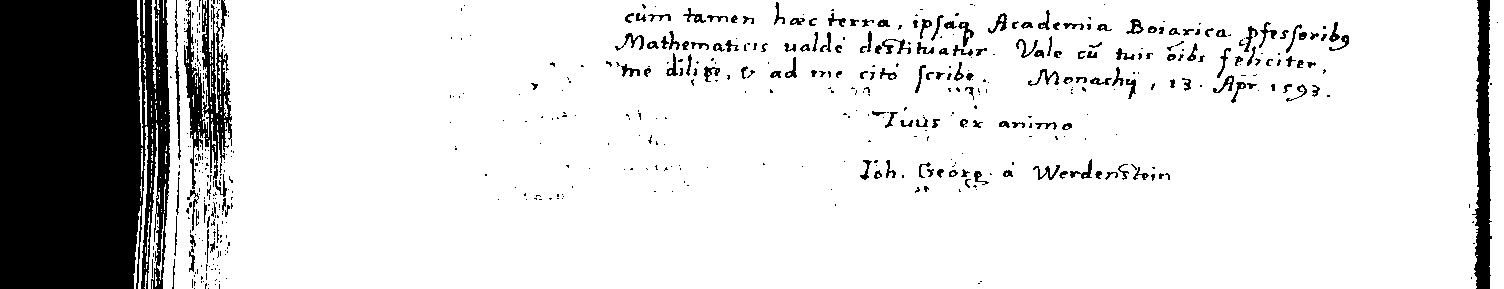 cùm tamen hæc terra, ipsáq; Academia Boiarica ꝓfessoribꝰ
Mathematicis ualdè destituatur. Vale cū tuis oībs feliciter,
me dilige, & ad me citò scribe. Monachij, 13. Apr. 1593.
Tuus ex animo
Ioh. Georg. à Werdenstein